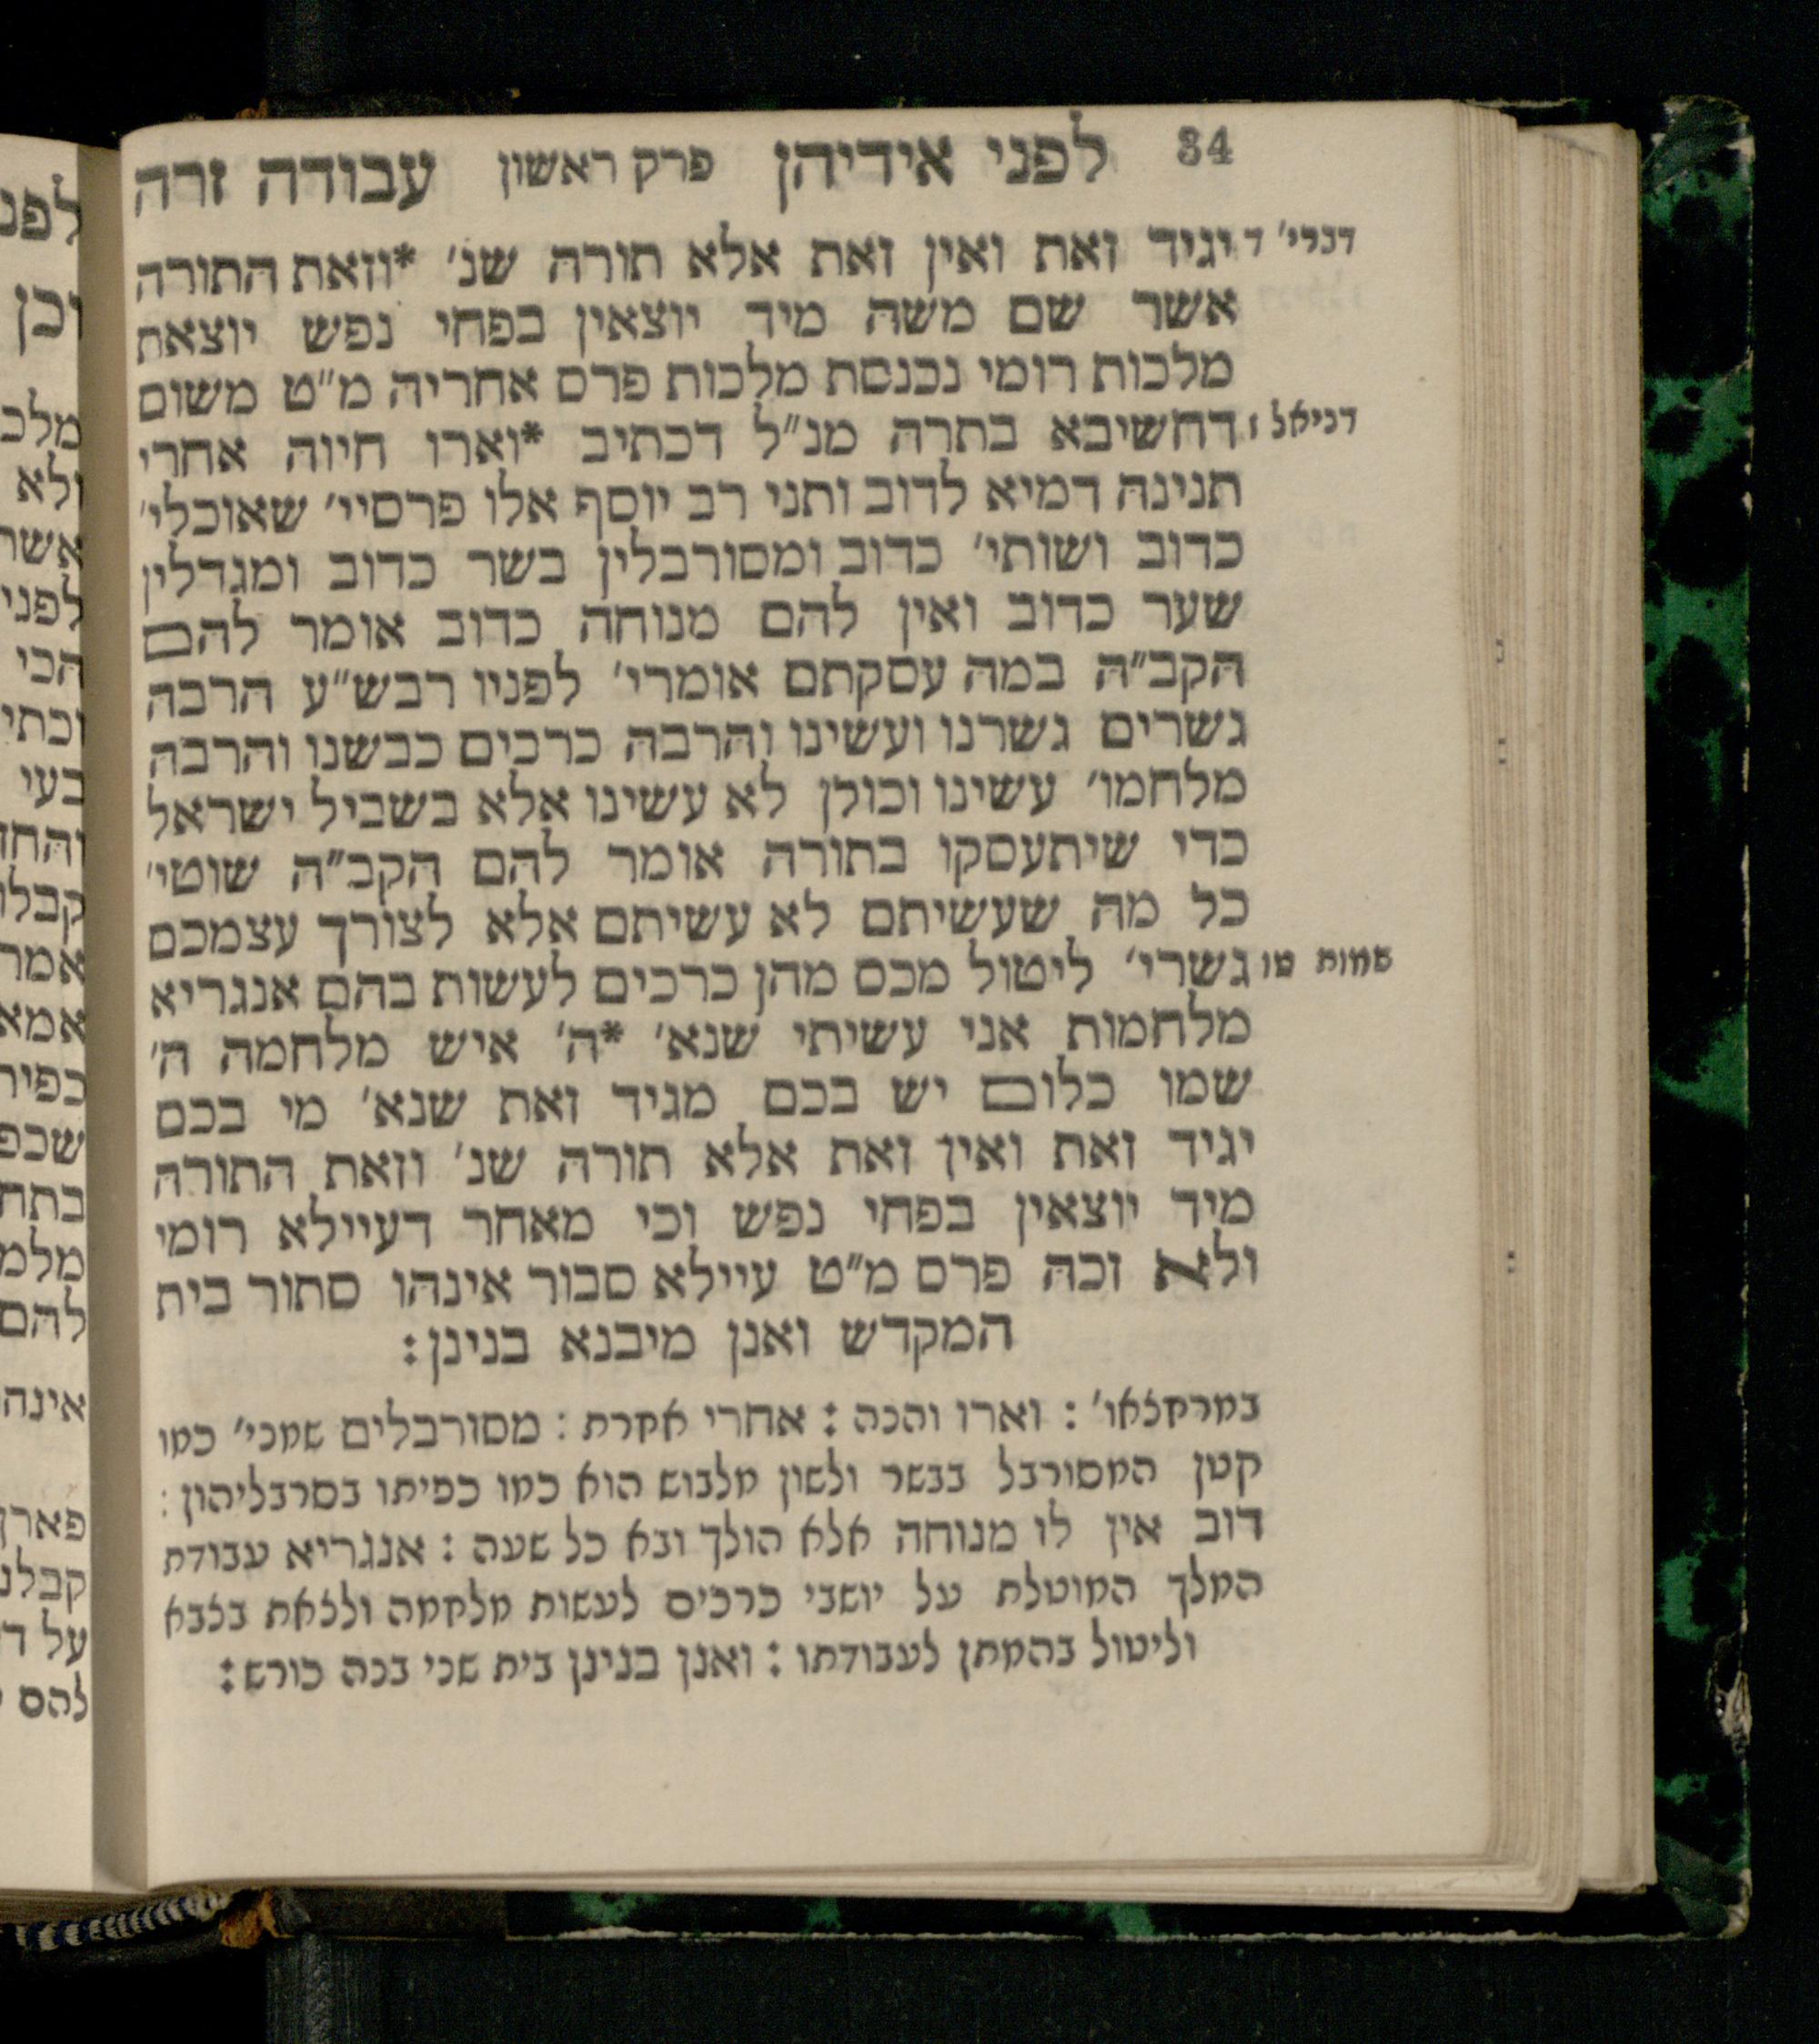 84 לפני אידיהן פרק ראשון עבודה זרה
דברי׳ ד יגיד זאת ואין זאת אלא תורה שנ׳ *וזאת התורה
אשר שם משה מיד יוצאין בפחי נפש יוצאת
מלכות רומי נכנסת מלכות פרס אחריה מ״ט משום
דניאל ז דחשיבא בתרה מנ״ל דכתיב *וארו חיוה אחרי
תנינה דמיא לדוב ותני רב יוסף אלו פרסיי׳ שאוכלי׳
כדוב ושותי׳ כדוב ומסורבלין בשר כדוב ומגדלין
שער כדוב ואין להם מנוחה כדוב אומר להם
הקב״ה במה עסקתם אומרי׳ לפניו רבש״ע הרבה
גשרים גשרנו ועשינו והרבה כרכים כבשנו והרבה
מלחמו׳ עשינו וכולן לא עשינו אלא בשביל ישראל
כדי שיתעסקו בתורה אומר להם הקב״ה שוטי׳
כל מה שעשיתם לא עשיתם אלא לצורך עצמכם
שמות טו גשרי׳ ליטול מכס מהן כרכים לעשות בהם אנגריא
מלחמות אני עשיתי שנא׳ *ה׳ איש מלחמה ה׳
שמו כלום יש בכם מגיד זאת שנא׳ מי בכם
יגיד זאת ואין זאת אלא תורה שנ׳ וזאת התורה
מיד יוצאין בפחי נפש וכי מאחר דעיילא רומי
ולא זכה פרס מ״ט עיילא סבור אינהו סתור בית
המקדש ואנן מיבנא בנינן:
במרחצאו׳ : וארו והנה : אחרי אחרת : מסורבלים שמני׳ כמו
קטן המסורבל בבשר ולשון מלבוש הוא כמו כפיתו בסרבליהון :
דוב אין לו מנוחה אלא הולך ובא כל שעה : אנגריא עבודת
המלך המוטלת על יושבי כרכים לעשות מלחמה ולצאת בצבא
וליטול בהמתן לעבודתו : ואנן בנינן בית שני בנה כורש :